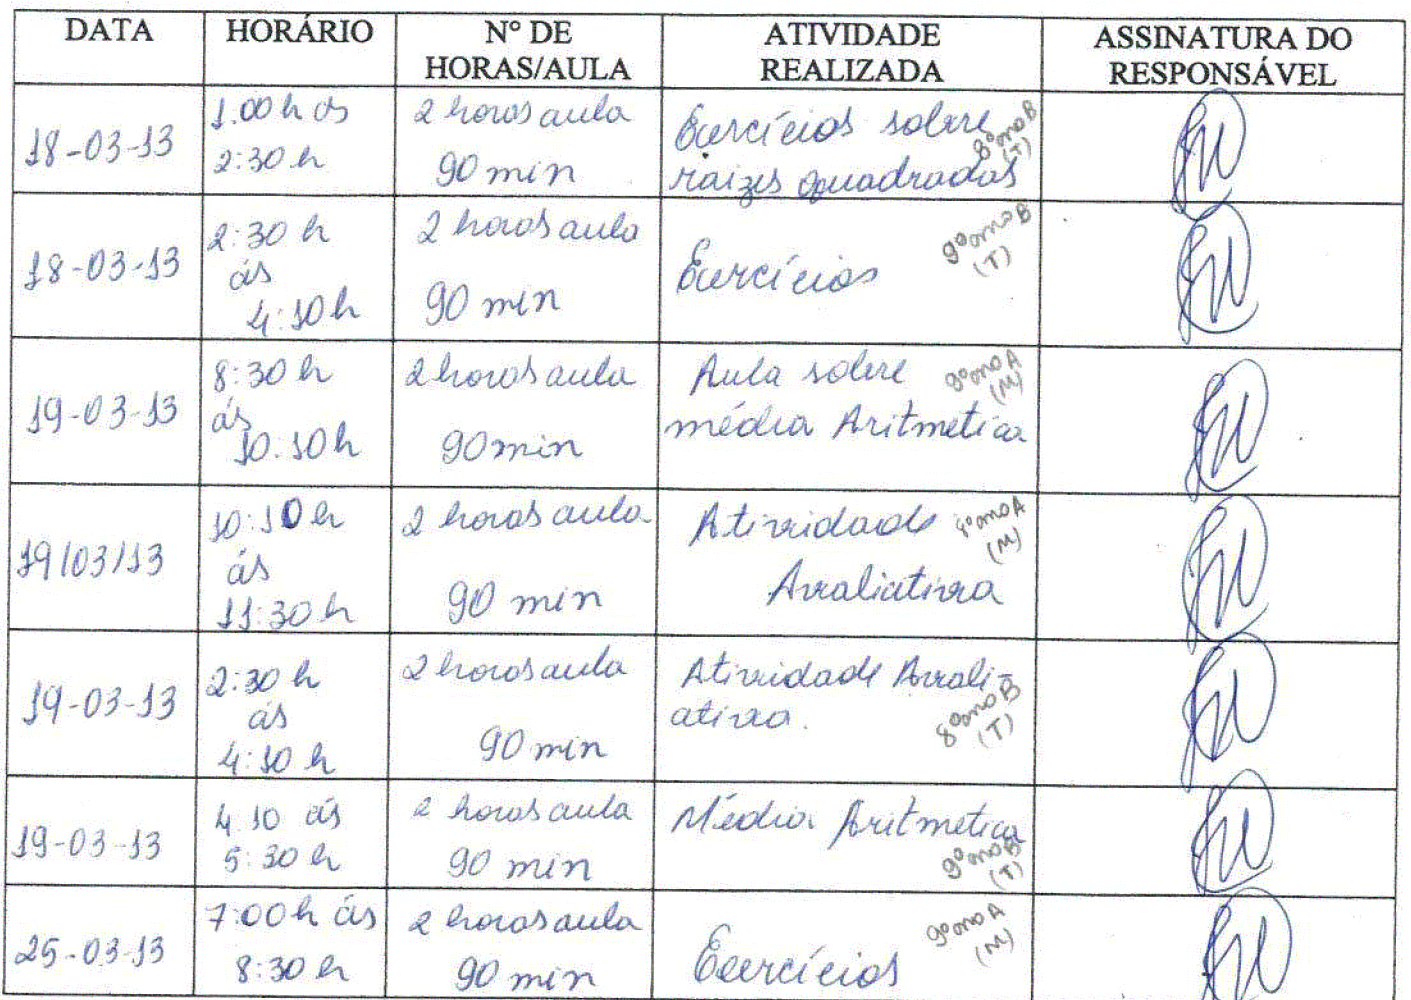 DATA HORÁRIO Nº DE HORAS/AULA ATIVIDADE REALIZADA ASSINATURA DO RESPONSÁVEL
18-03-13
1:00 h ás
2:30 h
2 horas aula
90 min
Exercícios sobre
raizes quadradas
8º ano B
(T)
18-03-13
2:30 h
ás
4:10 h
2 horas aula
90 min
Exercícios
9º ano B
(T)
19-03-13
8:30 h
ás
10:10 h
2 horas aula
90 min
Aula sobre
média Aritmetica
9º ano A
(M)
19/03/13
10:10 h
ás
11:30 h
2 horas aula
90 min
Atividade
Avaliativa
8º ano A
(M)
19-03-13
2:30 h
ás
4:10 h
2 horas aula
90 min
Atividade Avali-
ativa.
8º ano B
(T)
19-03-13
4:10 ás
5:30 h
2 horas aula
90 min
Média Aritmetica
9º ano B
(T)
25-03-13
7:00 h ás
8:30 h
2 horas aula
90 min
Exercícios
9º ano A
(M)